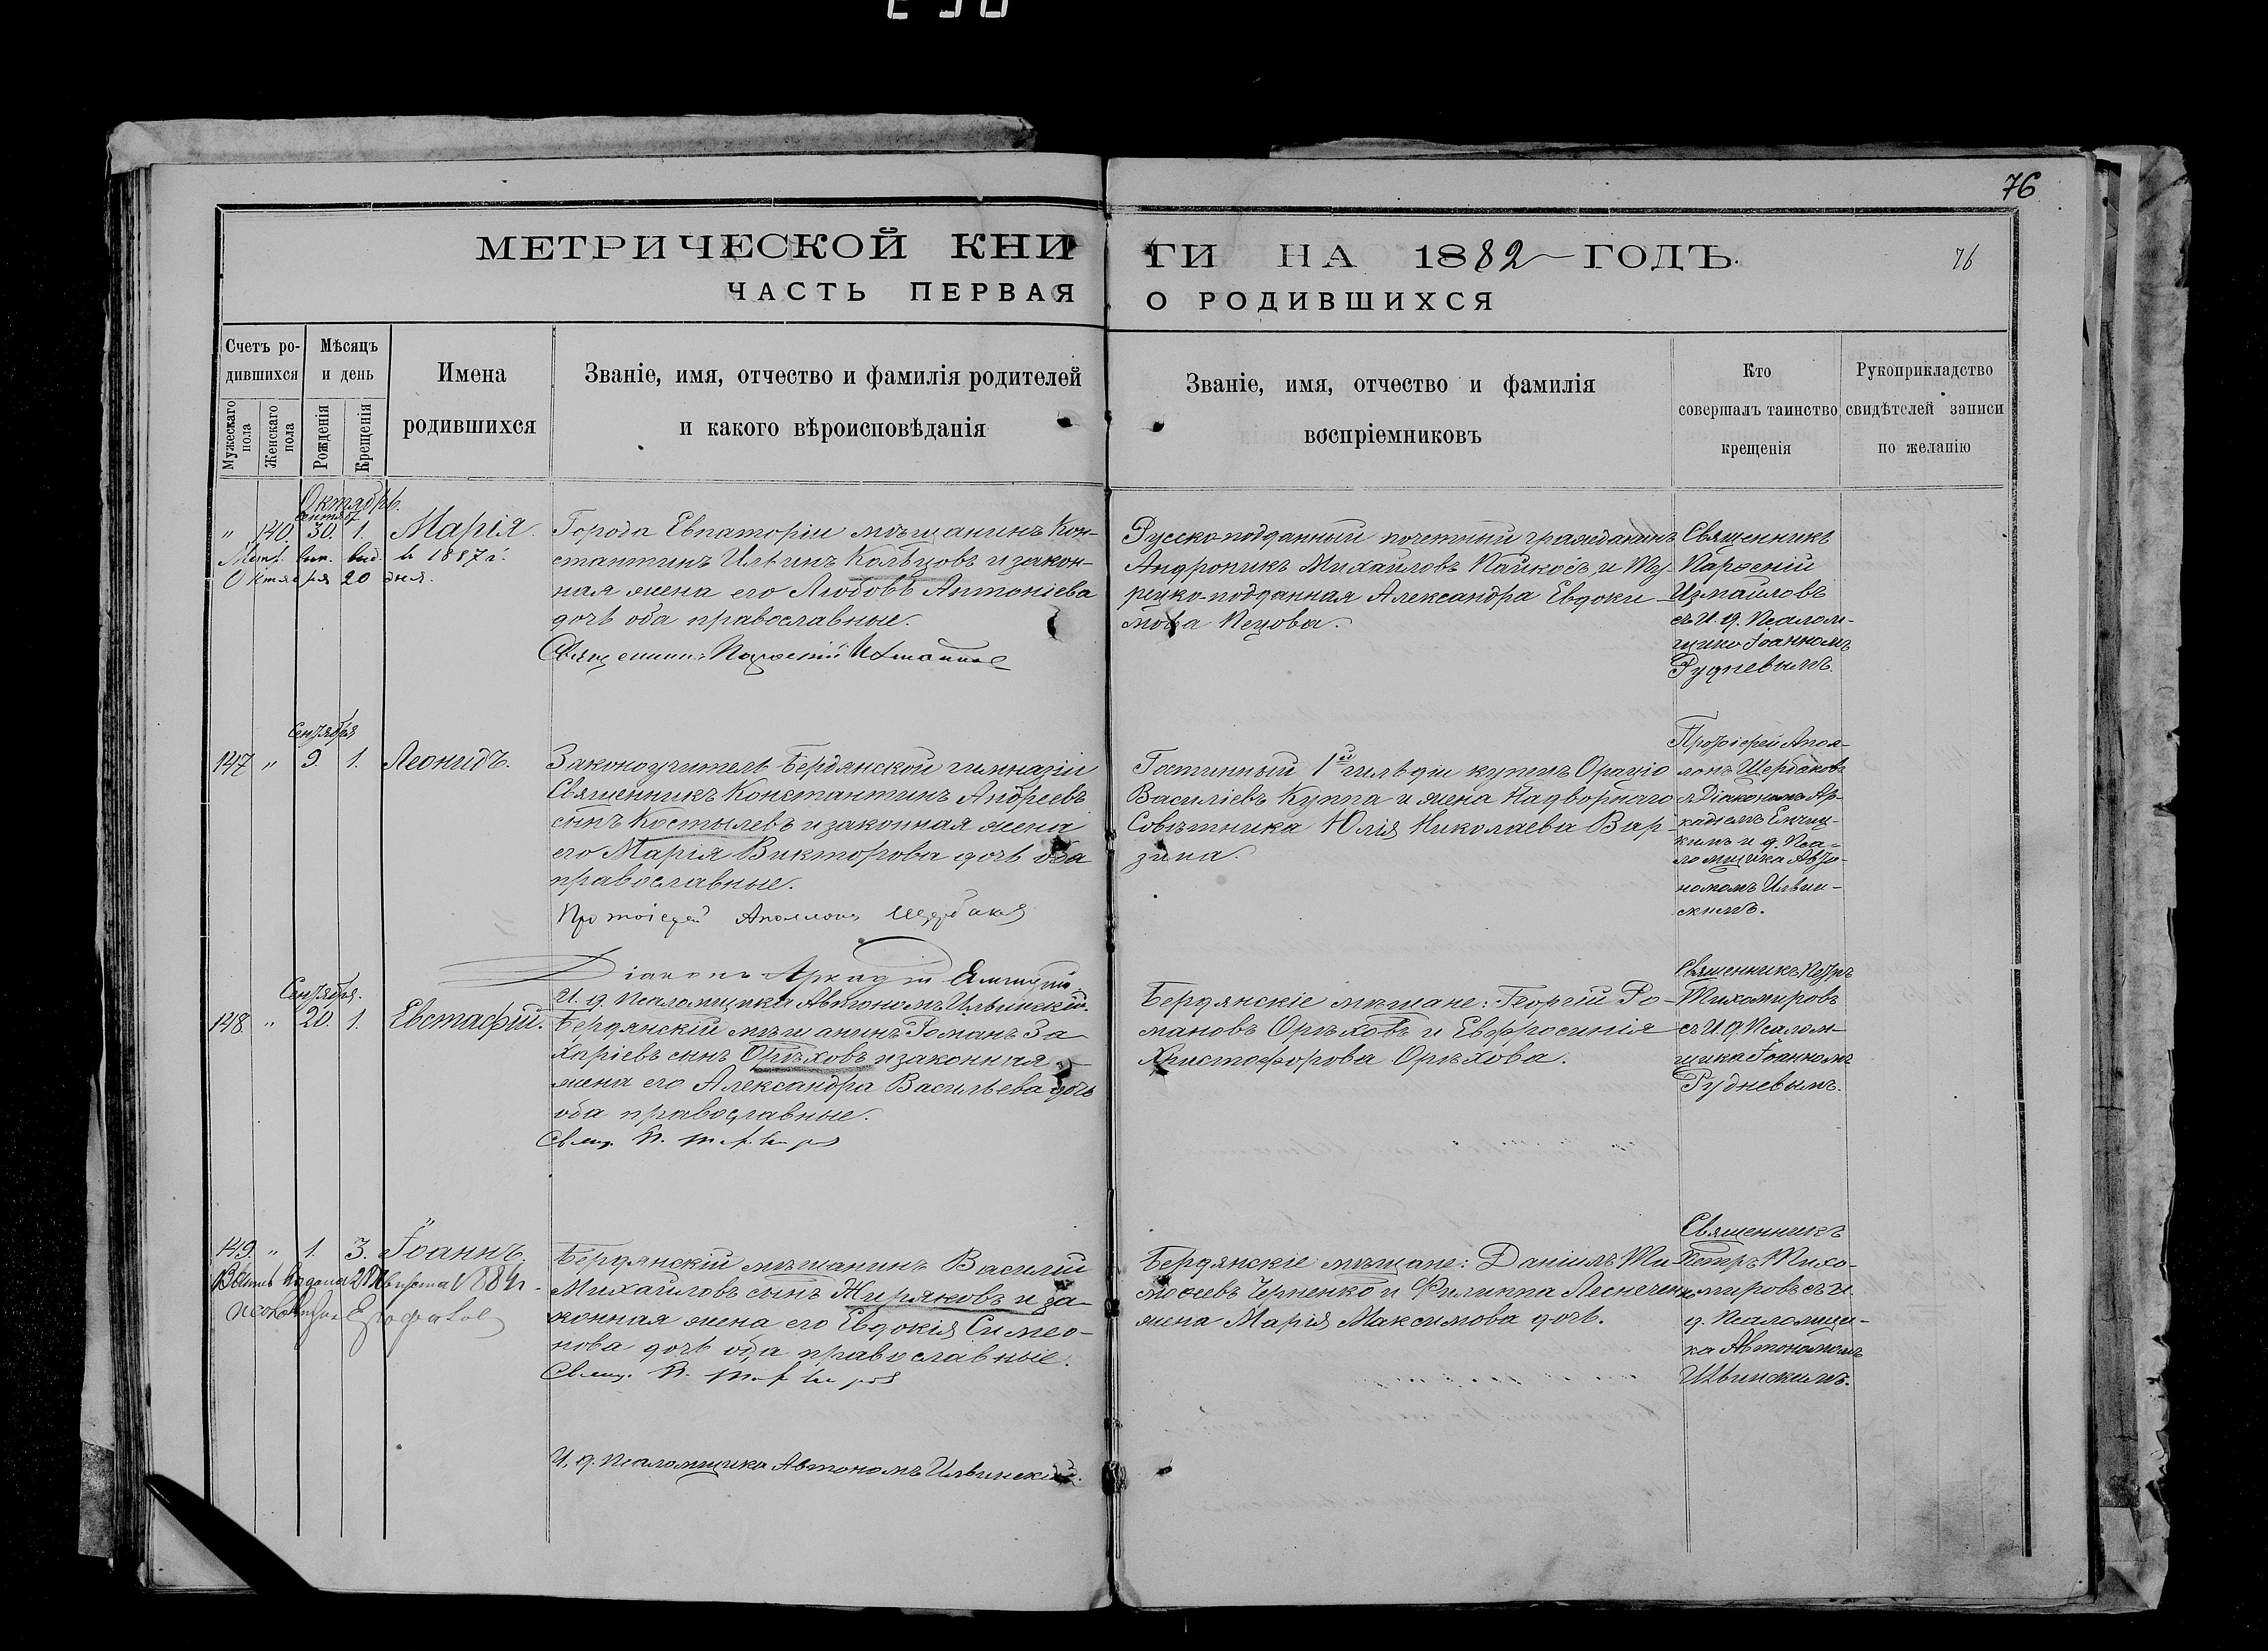 76
МЕТРИЧЕСКОЙ КНИ
ГИ НА 1882 ГОДЪ.
76
ЧАСТЬ ПЕРВАЯ
О РОДИВШИХСЯ
Счетъ ро-
дившихся
Мужескаго
пола
Женскаго
пола
Мѣсяцъ
и день
Рожденія
Крещенія
Имена
родившихся
Званіе, имя, отчество и фамилія родителей
и какого вѣроисповѣданія
Званіе, имя, отчество и фамилія
воспріемниковъ
Кто
совершалъ таинство
крещенія
Рукоприкладство
свидѣтелей записи
по желанію
Октябрь.
Сентяб.
" 140. 30. 1. Марія.
Метр. вып. выд. въ 1887 г.
Октября 20 дня.
Города Евпаторіи мѣщанинъ Кон-
стантинъ Ильинъ Кольцовъ и закон-
ная жена его Любовь Антоніева
дочь оба православные.
Священникъ Парѳеній Измаиловъ
Русско-подданный почетный гражданинъ
Андроникъ Михайловъ и Ту-
рецко-подданная Александра Евдоки-
мова Пецова.
Священникъ
Парѳеній
Измаиловъ
съ И. д. Псалом-
щика Іоанномъ
Рудневымъ.
Сентября
147 " 9. 1. Леонидъ.
Законоучитель Бердянской гимназіи
Священникъ Константинъ Андреевъ
сынъ Костылевъ и законная жена
его Марія Викторова дочь оба
православные.
Протоіерей Аполлонъ Щербаковъ
Діаконъ Аркадій
И. д. Псаломщика Автономъ Ильинскій.
Гостинный 1й гильдіи купецъ Ораціо
Василіевъ Куппа и жена Надворнаго
Совѣтника Юлія Николаева Вар-
зина.
Протоіерей Апол-
лонъ Щербаковъ
съ Діакономъ Ар-
кадіемъ
кимъ и д. Пса-
ломщика Авто-
номомъ Ильин-
скимъ.
Сентября.
148 " 20. 1. Евстафій.
Бердянскій мѣщанинъ Романъ За-
харіевъ сынъ Орѣховъ и законная
жена его Александра Васильева дочь
оба православные.
Свящ. П. Тихомировъ
Бердянскіе мѣщане: Георгій Ро-
мановъ Орѣховъ и Евфросинія
Христофорова Орѣхова.
Священникъ Петръ
Тихомировъ
съ И. д. Псалом-
щика Іоанномъ
Рудневымъ.
149. " 1. 3. Іоаннъ.
Бердянскій мѣщанинъ Василій
Михайловъ сынъ Жиряковъ и за-
конная жена его Евдокія Симео-
нова дочь оба православные.
Свящ. П. Тихомировъ
И. д. Псаломщика Автономъ Ильинскій.
Бердянскіе мѣщане: Даніилъ Ти-
моѳеевъ Черненко и Филиппа
жена Марія Максимова дочь.
Священникъ
Петръ Тихо-
мировъ съ И.
д. Псаломщи-
ка Автономомъ
Ильинскимъ.